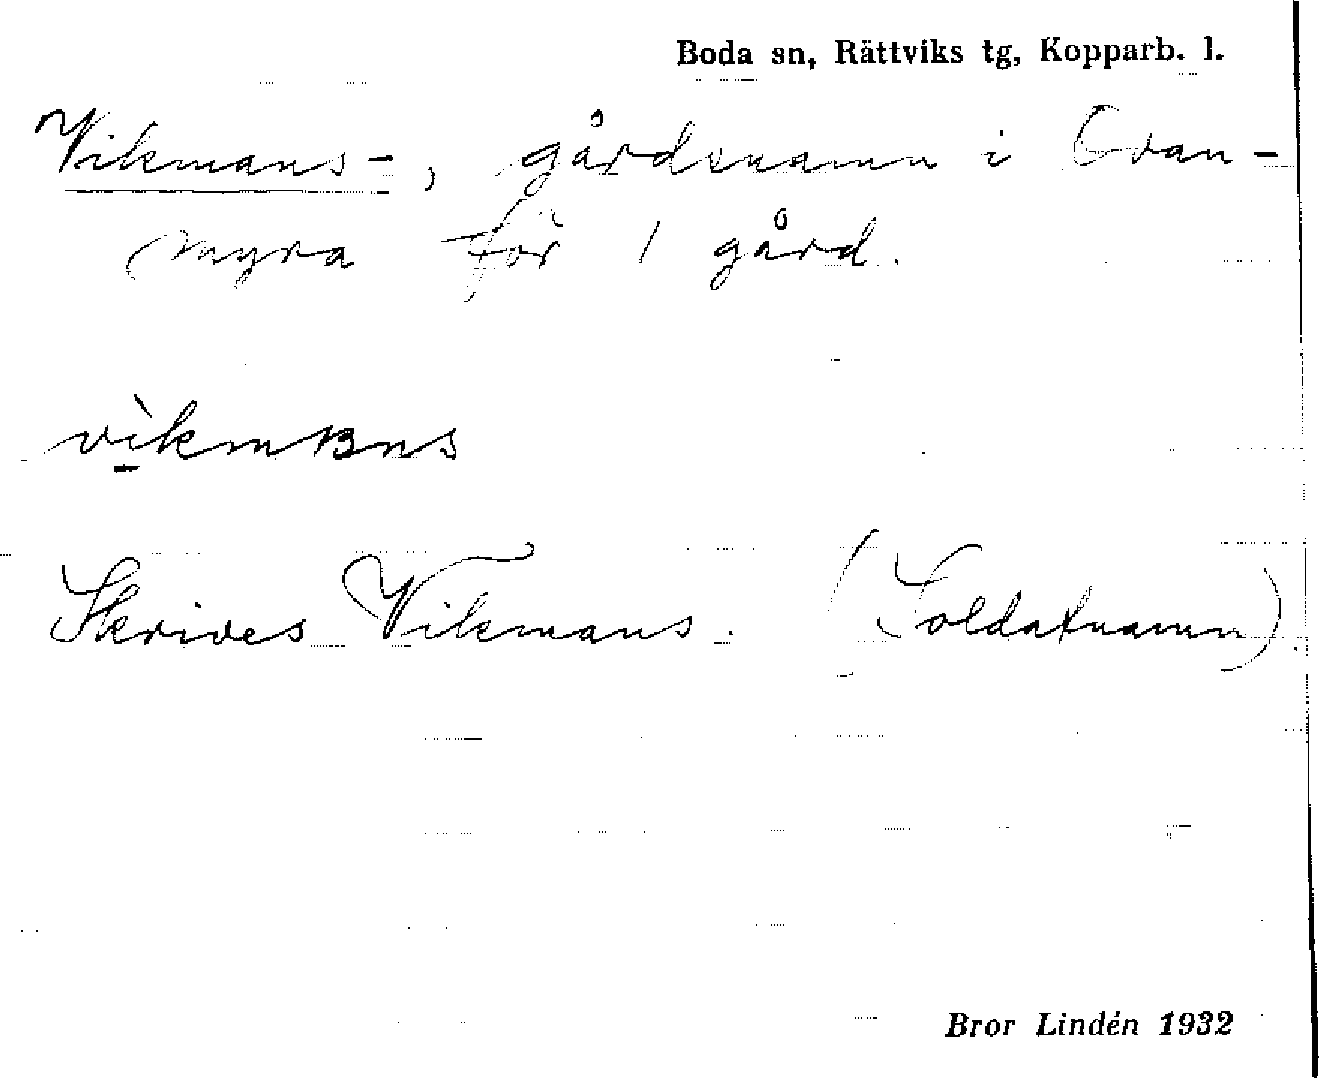 Boda sn, Rättviks tg, Kopparb. l.
Vikmans-, gårdsnamn i Ovan-
myra för 1 gård.
vìkmans
Skrives Vikmans. (Soldatnamn).
Bror Lindén 1932